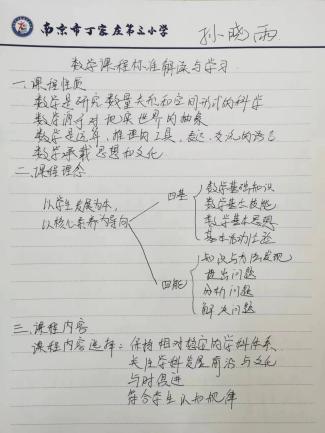 南京市丁家庄第二小学
孙晓雨
数学课程标准解读与学习
一、课程性质
数学是研究数量关系和空间形式的科学
数学源于对现实世界的抽象
数学是运算、推理的工具，表达、交流的语言
数学承载思想和文化
二、课程理念
以学生发展为本，
以核心素养为导向
四基
数学基础知识
数学基本技能
数学基本思想
基本活动经验
四能
知识与方法发现
提出问题
分析问题
解决问题
三、课程内容
课程内容选择：保持相对稳定的学科体系
关注学科发展前沿与文化
与时俱进
符合学生认知规律